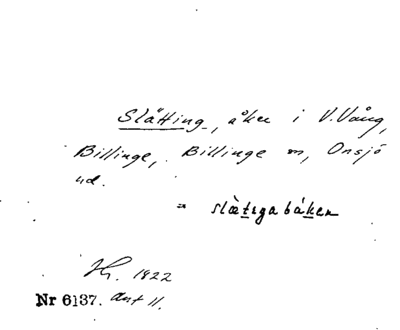 Slätting, åker i V.Vång,
Billinge, Billinge sn, Onsjö
hd.
= slætıgabåken
Hr. 1822
Nr 6137. Ant 11.